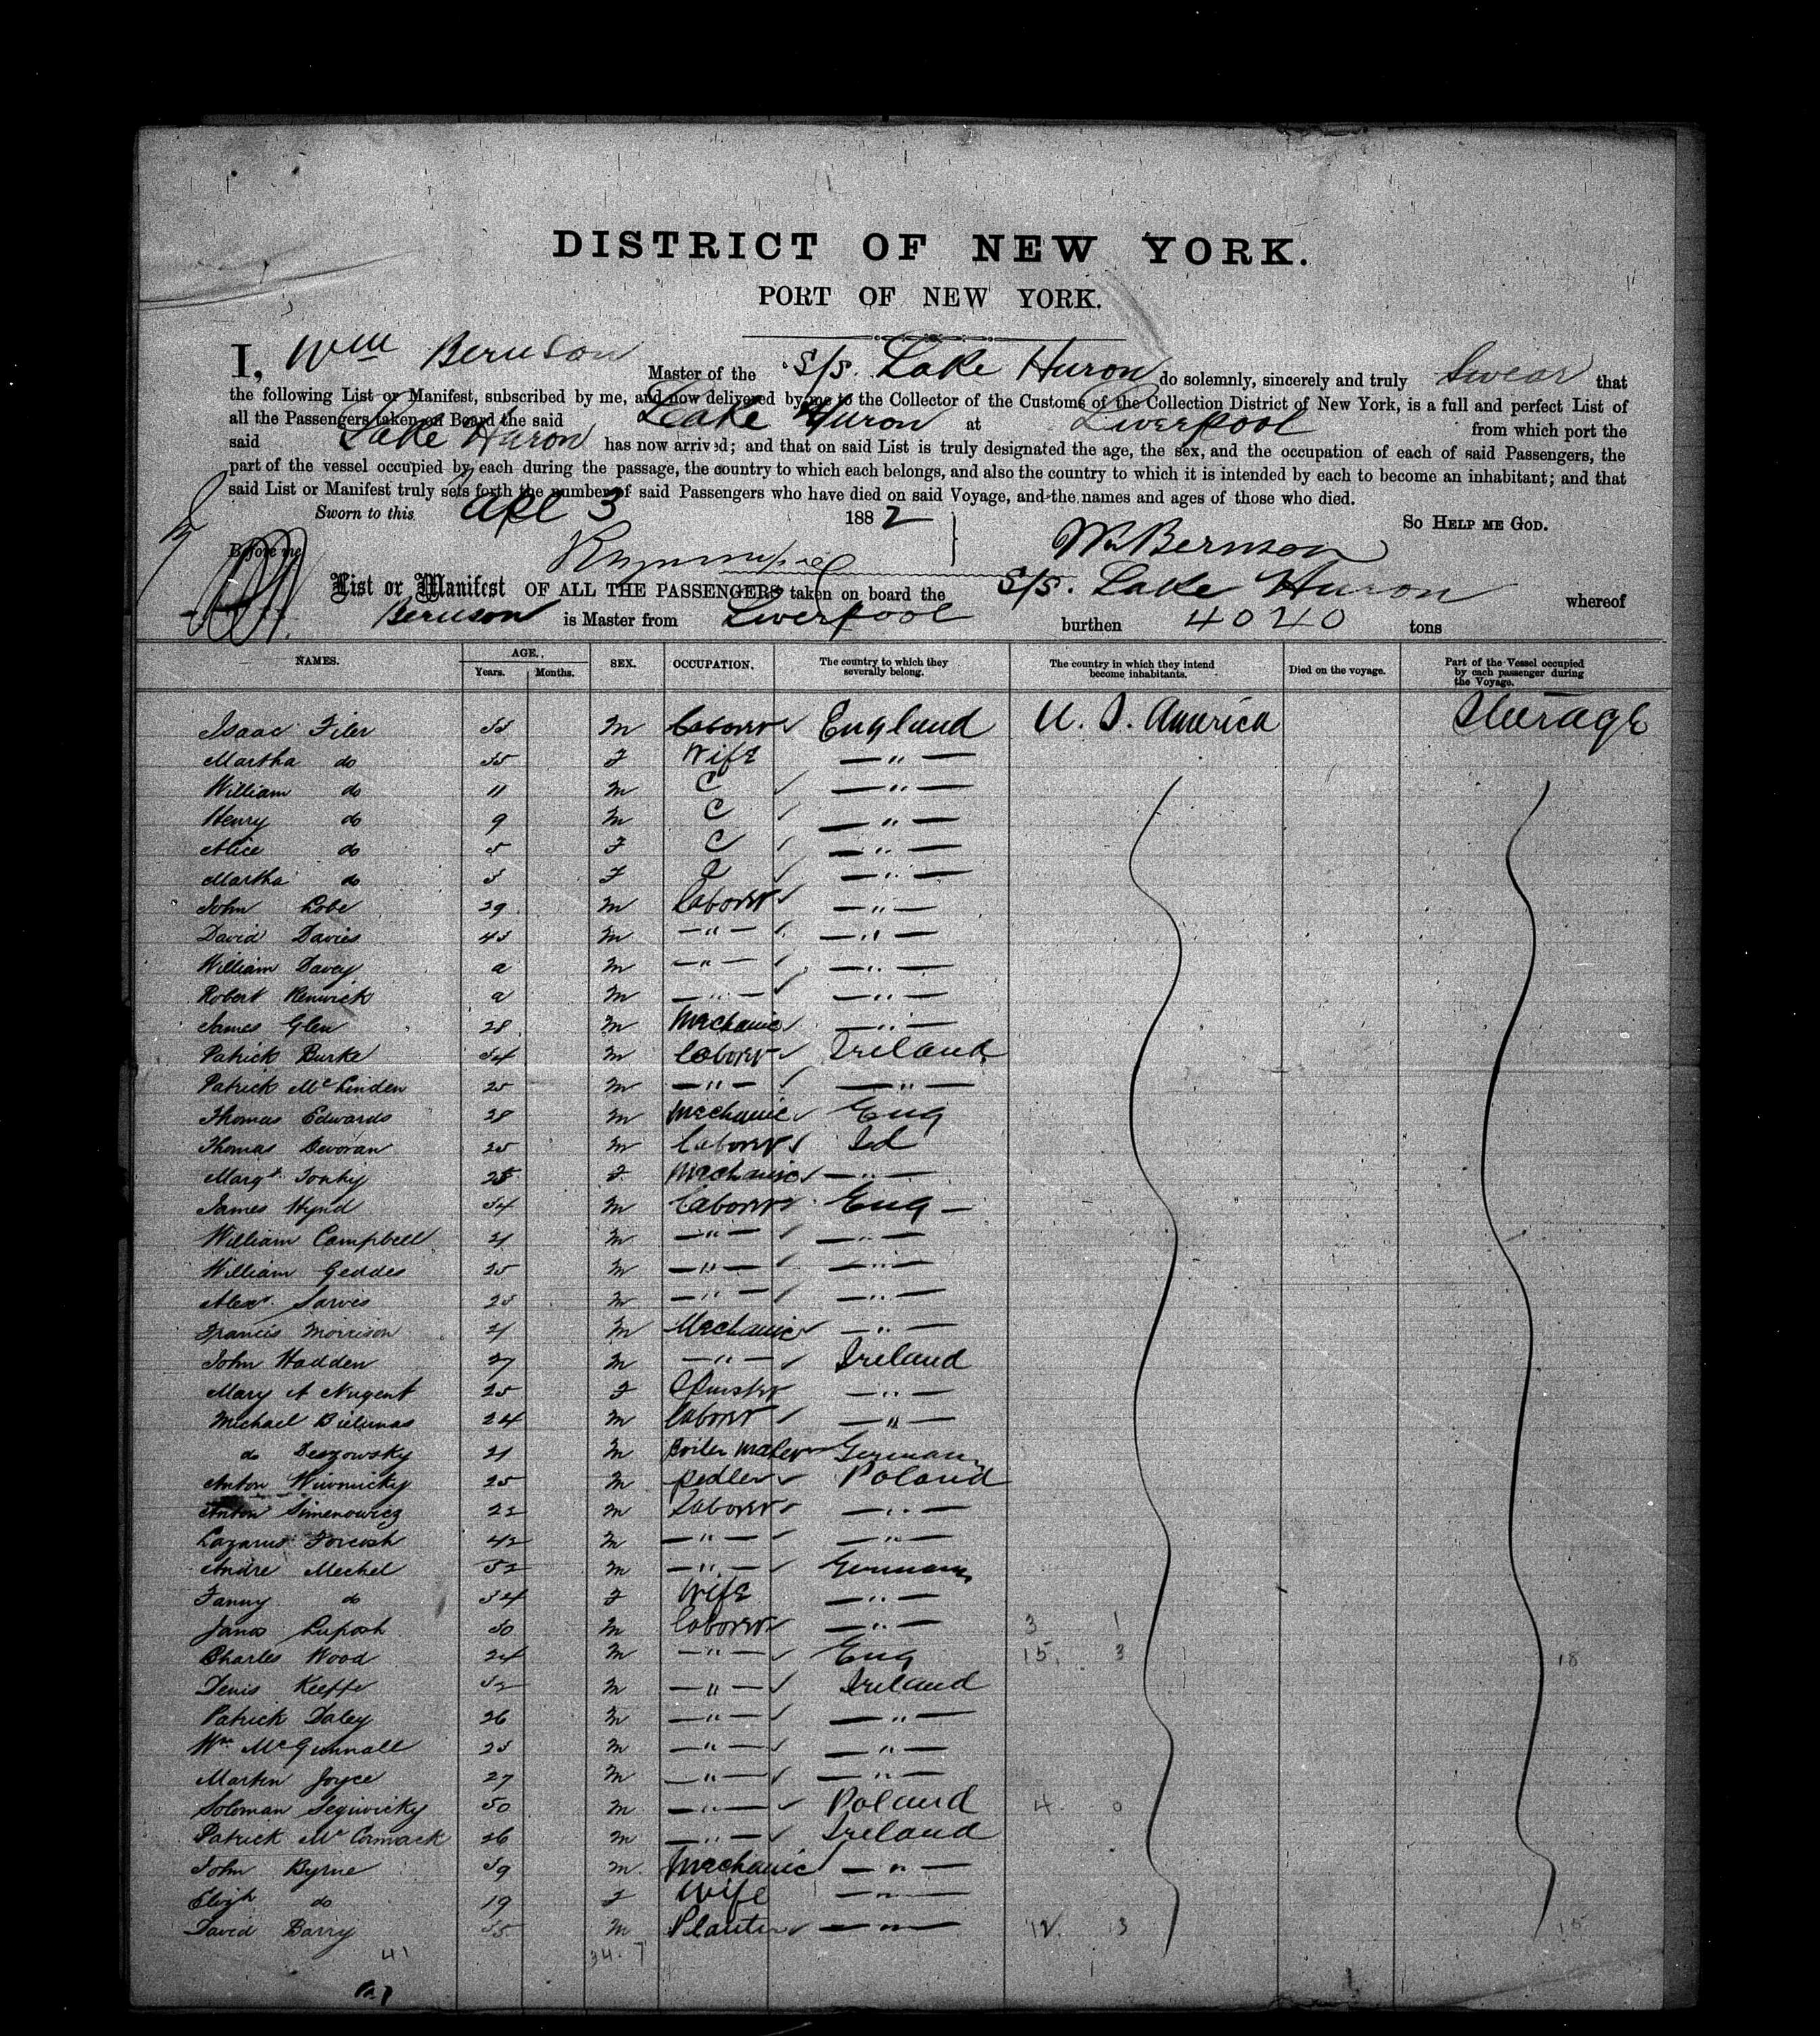 DISTRICT OF NEW YORK.
PORT OF NEW YORK.
I, Wm Bernson Master of the S/S. Lake Huron do solemnly, sincerely and truly Swear that
the following List or Manifest, subscribed by me, and now delivered by me to the Collector of the Customs of the Collection District of New York, is a full and perfect List of
all the Passengers taken on Board the said Lake Huron at Liverpool from which port the
said Lake Huron has now arrived; and that on said List is truly designated the age, the sex, and the occupation of each of said Passengers, the
part of the vessel occupied by each during the passage, the country to which each belongs, and also the country to which it is intended by each to become an inhabitant; and that
said List or Manifest truly sets forth the number of said Passengers who have died on said Voyage, and the names and ages of those who died.
Sworn to this Apl 3 1882 So Help me God.
Before me Wm Bernson
List or Manifest OF ALL THE PASSENGERS taken on board the S/S. Lake Huron whereof
Bernson is Master from Liverpool burthen 4040 tons
NAMES. AGE. Years. Months. SEX. OCCUPATION. The country to which they severally belong. The country in which they intend become inhabitants. Died on the voyage. Part of the Vessel occupied by each passenger during the Voyage.
Isaac Filer M Laborer England U. S. America Steerage
Martha do 35 F Wife — " —
William do 11 M C — " —
Henry do 9 M C — " —
Alice do 5 F C — " —
Martha do 3 F C — " —
John Lobe 29 M Laborer — " —
David Davies 43 M — " — — " —
William Davey a M — " — — " —
Robert Renwick a M — " — — " —
James Glen 28 M Mechanic — " —
Patrick Burke 34 M Laborer Ireland
Patrick McLinden 25 M — " — — " —
Thomas Edwards 28 M Mechanic Eng
Thomas Devoran 25 M Laborer Ied
Margt F Mechanic — " —
James Hynd 34 M Laborer Eng —
William Campbell 21 M — " — — " —
William Geddes 25 M — " — — " —
Alexr. Sarves M — " — — " —
Francis Morrison 21 M Mechanic — " —
John Hadden 27 M — " — Ireland
Mary A Nugent 25 F Spinster — " —
Michael Bielunas 24 M Laborer — " —
do Deszowsky 21 M Boiler maker Germany
Anton Wiwnicky 25 M pedler Poland
Anton Simenowicz 22 M Laborer — " —
Lazarus 42 M — " — — " —
Andre Mechel 52 M — " — Germany
Fanny do 34 F Wife — " —
Janos Luposh 30 M Laborer — " — 3 1
Charles Wood 24 M — " — Eng 15. 3 18
Denis Keeffe 32 M — " — Ireland
Patrick Daley 26 M — " — — " —
Wm McGunnall 23 M — " — — " —
Martin Joyce 27 M — " — — " —
Soloman Segiwicky 50 M — " — Poland 4. 0
Patrick McCormack 26 M — " — Ireland
John Byrne 39 M. Mechanic — " —
Elizh do 19 F Wife — " —
David Barry 35 M Planter — " — 12. 13 15
41 34. 7